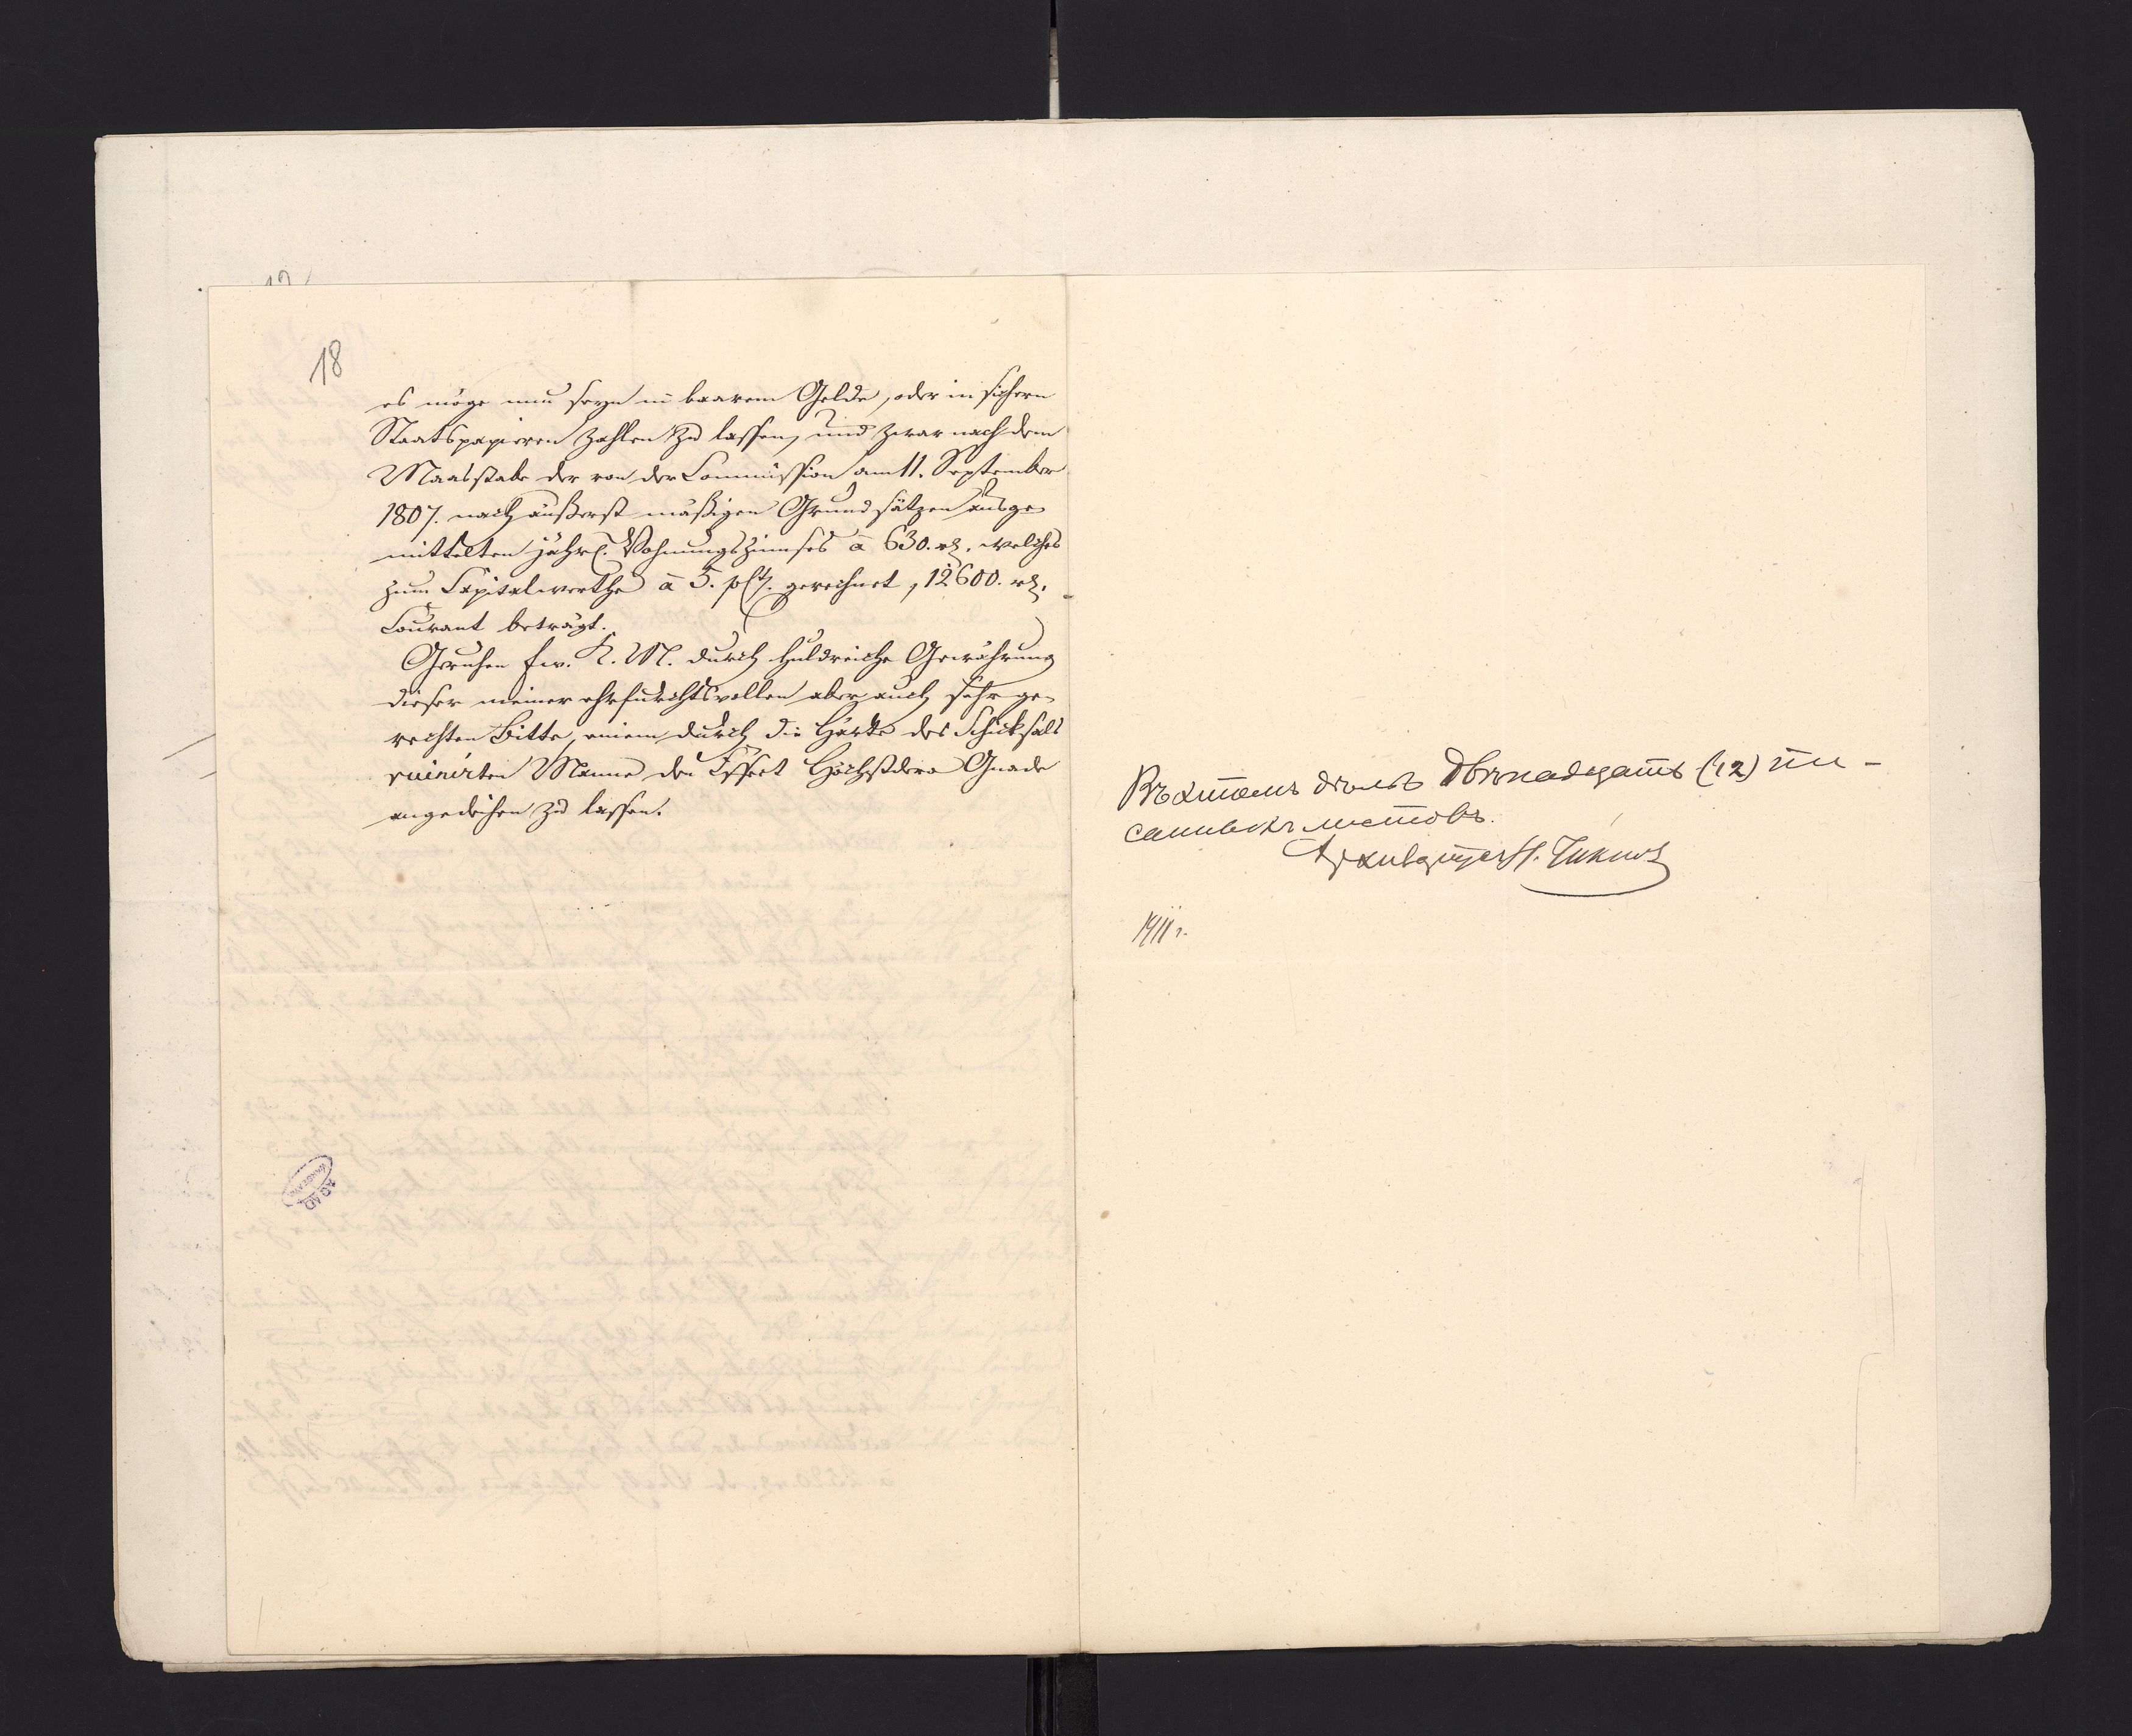 18
es möge nun seyn in baarem Gelde, oder in sichern
Staatspapieren zahlen zu lassen, und zwar nach dem
Maasstabe der von der Commission am 11. September
1807. nach äußerst mäßigen Grundsätzen ausge-
mittelten jährl. Wohnungszinses à 630. rt. welches
zum Capitalwerthe à 5. pCt. gerechnet, 12600. rt.
Courant beträgt.
Geruhen Ew. K. M. durch huldreiche Gewährung
dieser meiner ehrfurchtsvollen aber auch sehr ge-
rechten Bitte, einem durch die Härte des Schicksals
ruinirten Manne den Effect Höchstdero Gnade
angedeihen zu lassen.
AGAD
WARSZAWA
Въ этомъ дѣлѣ двѣнадцать (12) пи-
санныхъ листовъ.
Архиваріусъ
1911 г.